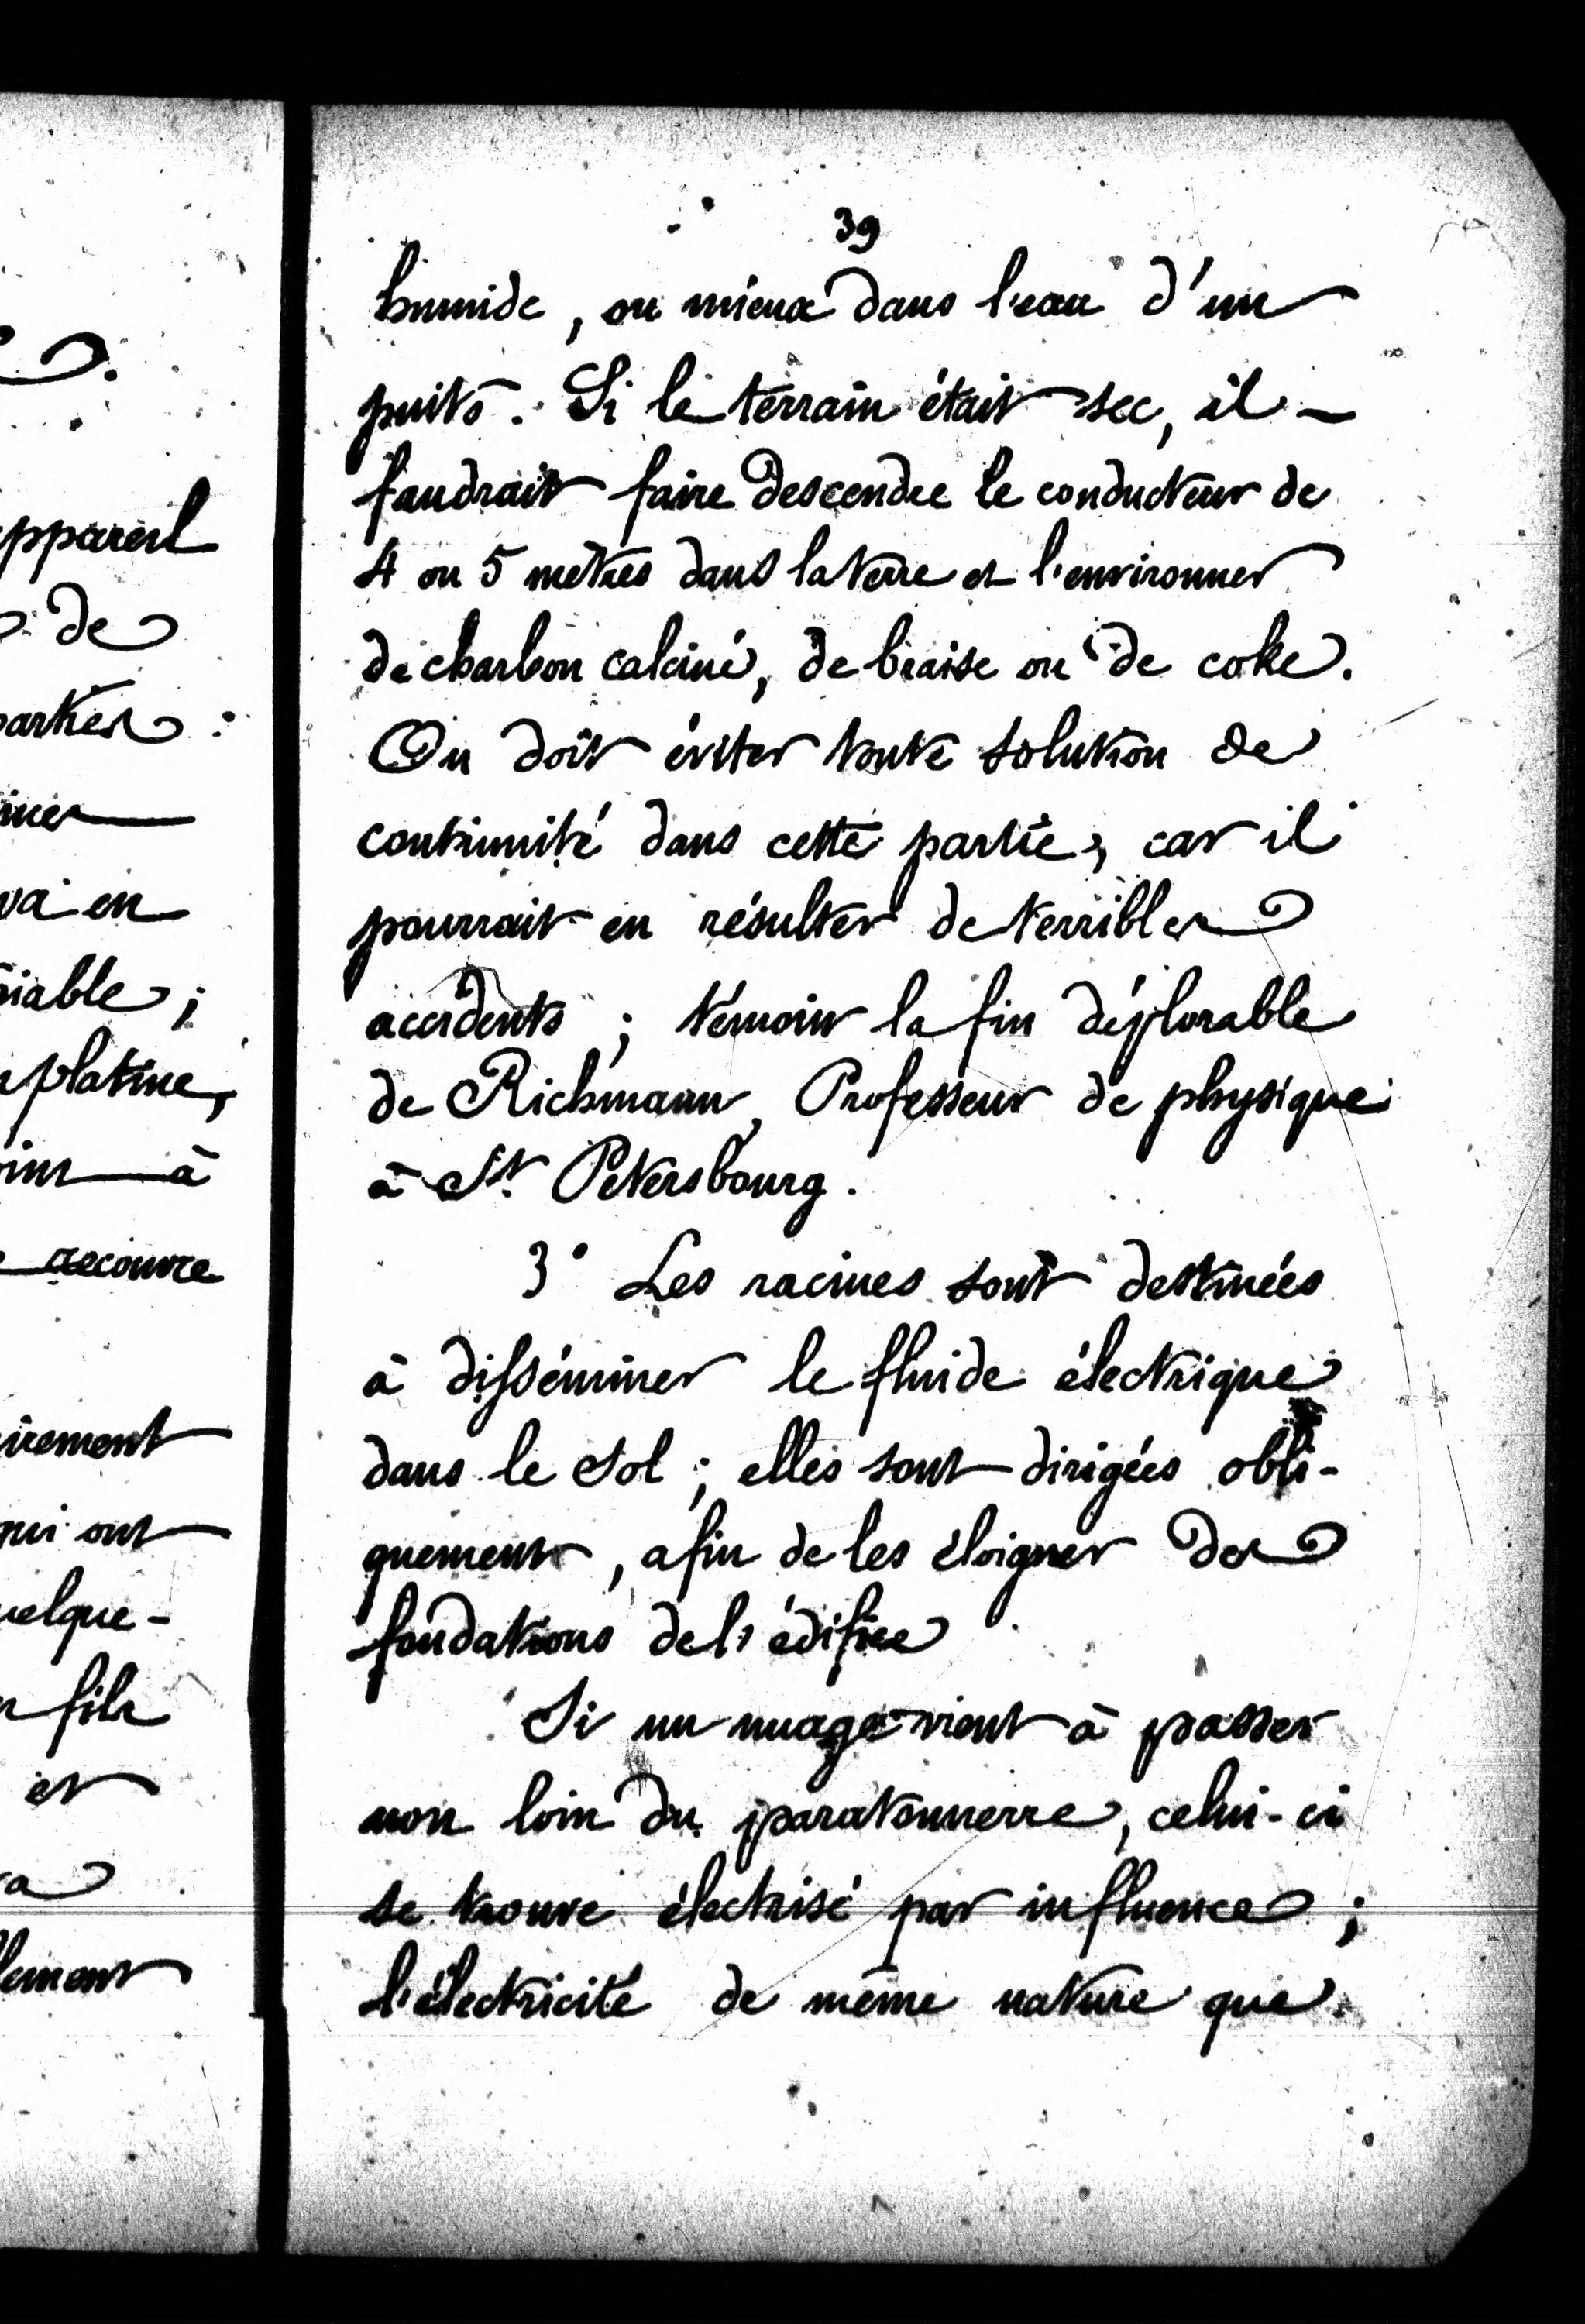 ppareil
de
parties :
va en
iable ;
platine,
à
recouvre
irement
qui ont
quelque-
fils
et
lement
39
humide, ou mieux dans l'eau d'un
puits. Si le terrain était sec, il
faudrait faire descendre le conducteur de
4 ou 5 mètres dans la terre et l'environner
de charbon calciné, de braise ou de coke.
On doit éviter toute solution de
continuité dans cette partie, car il
pourrait en résulter de terribles
accidents ; témoin la fin déplorable
de Richmann, Professeur de physique
à St. Petersbourg.
3° Les racines sont destinées
à disséminer le fluide électrique
dans le sol ; elles sont dirigées obli-
quement, afin de les éloigner des
fondations de l'édifice
Si un nuage vient à passer
non loin du paratonnerre, celui-ci
se trouve électrisé par influence ;
l'électricité de même nature que